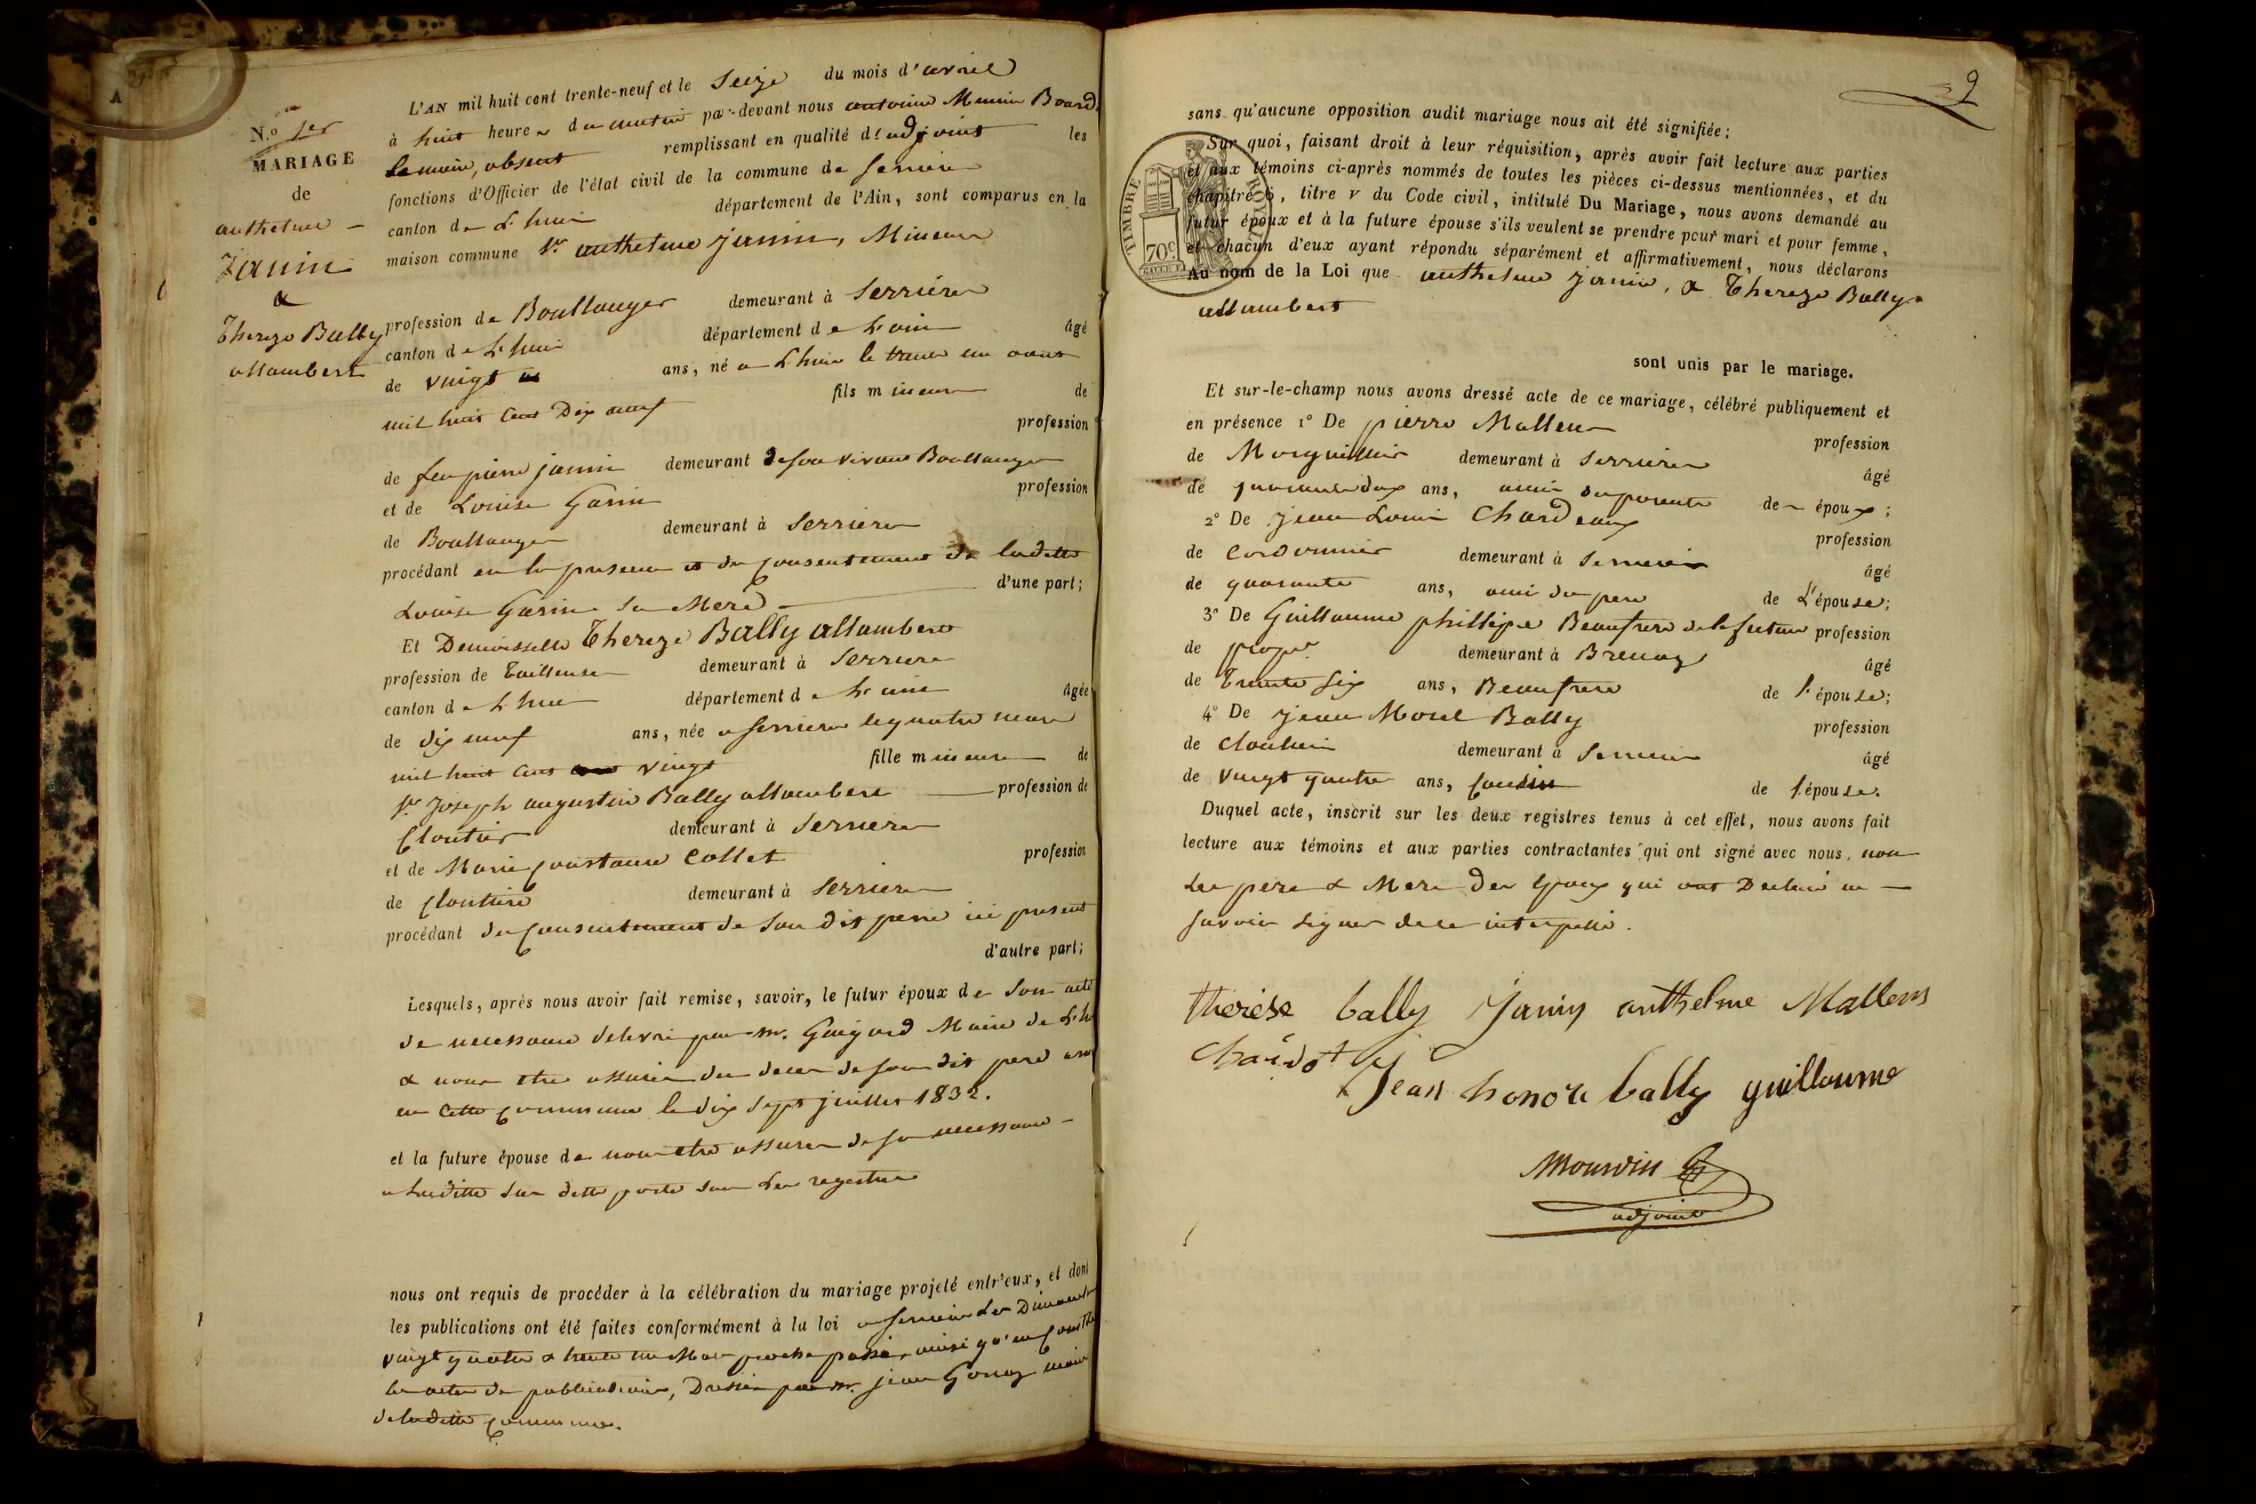 N.º 1er
MARIAGE
de
anthelme
Janin
&
Thereze Bally
allambert
L'AN mil huit cent trente-neuf et le Seize du mois d'avril
à huit heures du matin par-devant nous antoine Bourd
le maire, absent remplissant en qualité d'adjoint les
fonctions d'Officier de l'état civil de la commune de Serriere
canton de L'huis département de l'Ain, sont comparus en la
maison commune Sr anthelme janin, Mineur
profession de Boullanger demeurant à Serriere
canton de L'huis département de L'ain âgé
de vingt ans, né a L'huis le trente un aout
mil huit cent Dix neuf fils mineur de
profession
de feu pierre janin demeurant de son vivant Boullanger
et de Louise Garin profession
de Boullanger demeurant à Serriere
procédant en la presence et du consentement de ladette
Louise Garin sa Mere d'une part;
Et Demoiselle Thereze Bally allambert
profession de Tailleuse demeurant à Serriere
canton de L'huis département de L'ain âgée
de dix neuf ans, née a Serriere le quatre mars
mil huit cent vingt fille mineure de
Sr Joseph augustin Bally allambert profession de
Cloutier demeurant à Serriere
et de Marie Constance Collet profession
de Cloutiere demeurant à Serriere
procédant du consentement de son dit pere ici present
d'autre part;
Lesquels, après nous avoir fait remise, savoir, le futur époux de Son acte
de naissance delivré par mr. Maire de L'h
& nous etre assurés du deces de son dit pere
en cette commune le dix Sept juillet 1832.
et la future épouse de nous etre assurés de sa naissance
a laditte
nous ont requis de procéder à la célébration du mariage projeté entr'eux, et dont
les publications ont été faites conformément à la loi a Serriere les Dimanch
vingt quatre & trente un Mars proche passé, ainsi qu'en
les actes de publications, Dressés par mr. jean Gonay maire
de laditte commune.
9
sans qu'aucune opposition audit mariage nous ait été signifiée;
Sur quoi, faisant droit à leur réquisition, après avoir fait lecture aux parties
et aux témoins ci-après nommés de toutes les pièces ci-dessus mentionnées, et du
chapitre 6, titre v du Code civil, intitulé Du Mariage, nous avons demandé au
futur époux et à la future épouse s'ils veulent se prendre pour mari et pour femme,
et chacun d'eux ayant répondu séparément et affirmativement, nous déclarons
Au nom de la Loi que anthelme janin, & Thereze Bally
allambert
TIMBRE ROYAL
70c
sont unis par le mariage.
Et sur-le-champ nous avons dressé acte de ce mariage, célébré publiquement et
en présence 1º De pierre Mallen
profession
de Marguillier demeurant à Serriere
âgé
de quarante deux ans, ami des parents de époux;
2º De jean Louis Chardeaux
profession
de Cordonnier demeurant à Serriere
âgé
de quarante ans, ami du pere de L'épouse;
3º De Guillaume phillipe Beaufrere de la future profession
de propre demeurant à Brenaz
âgé
de Trente Six ans, Beaufrere de l'épouse;
4º De jean Bally
profession
de Cloutier demeurant à Serriere
âgé
de vingt quatre ans, Cousin de l'épouse.
Duquel acte, inscrit sur les deux registres tenus à cet effet, nous avons fait
lecture aux témoins et aux parties contractantes qui ont signé avec nous, non
les pere & Mere des Epoux qui ont Declaré ne
Savoir Signer de ce interpellé.
therese bally Janin anthelme Mallens
Chardot
Jean honoré bally guillaume
adjoint